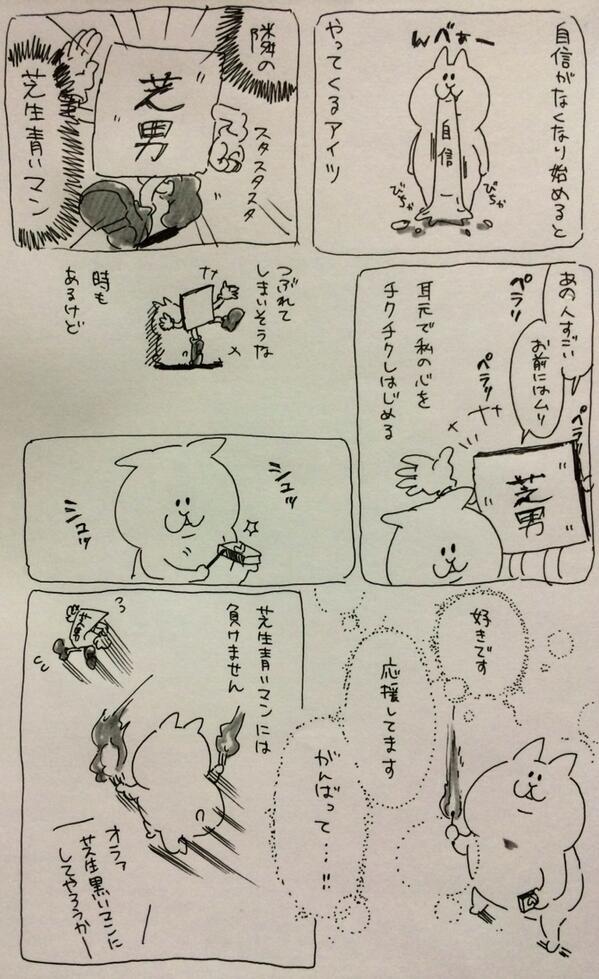 自信がなくなり始めると
んべぁー
自信
びちゃ
びちゃ
やってくるアイツ
隣の
芝生青いマン
芝男
スタスタスタ
あの人すごい
お前にはムリ
ペラリ
ペラリ
ペラリ
耳元で私の心を
チクチクしはじめる
芝男
つぶれて
しまいそうな
時も
あるけど
シュッ
シュッ
好きです
応援してます
がんばって…!!
芝生青いマンには
負けません
芝男
オラァ
芝生黒いマンに
してやろうかー